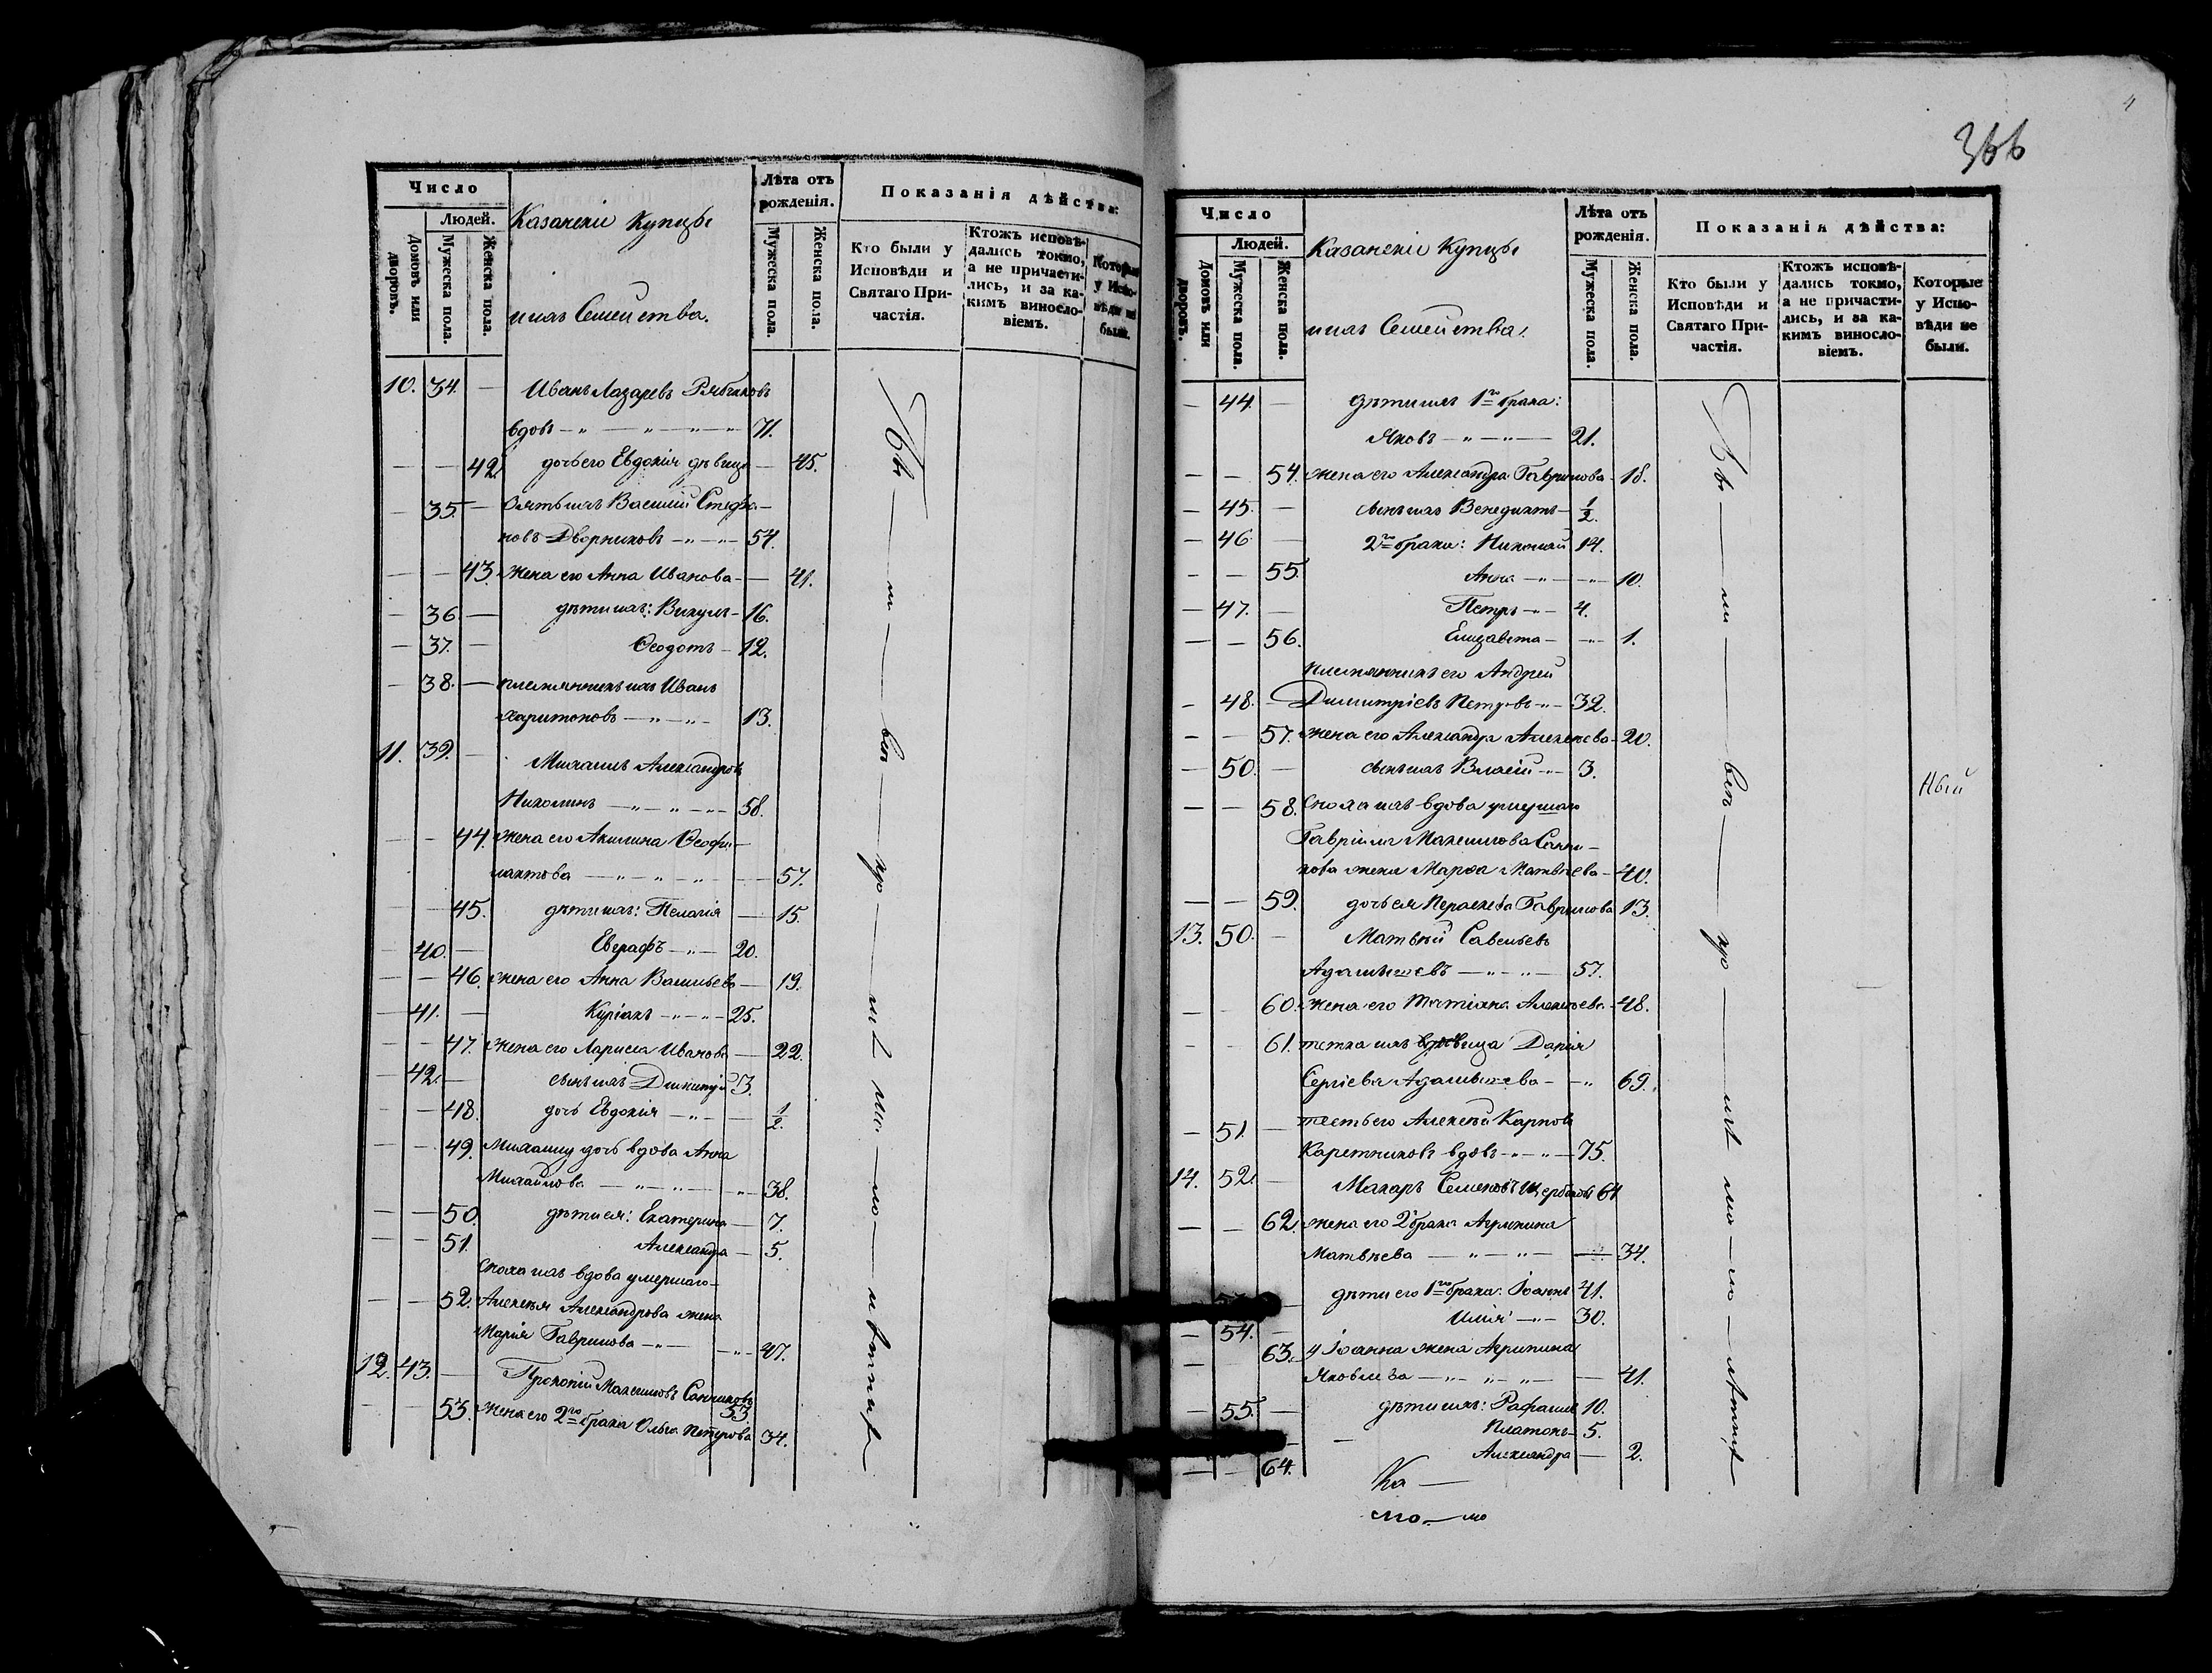 366
Число
Людей.
Домовъ или дворовъ.
Мужеска пола.
Женска пола.
Казанскіе Купцы
и ихъ Семейства.
Лѣта отъ рожденія.
Мужеска пола.
Женска пола.
Показанія дѣйства:
Кто были у Исповѣди и Святаго При-
частія.
Ктожъ исповѣ-
дались токмо,
а не причасти-
лись, и за ка-
кимъ винословіемъ.
Которые у Испо-
вѣди не были.
10. 34. — Иванъ Лазаревъ Рябчиковъ
вдовъ — 71.
— — 42. дочь его Евдокія дѣвица — 45.
— 35. — Зять ихъ Василій Стефа-
новъ Дворниковъ 54.
— — 43. Жена его Анна Иванова — 41.
— 36. — дѣти ихъ: Викулъ — 16.
— 37. — Ѳеодотъ — 12.
— 38. — племянникъ ихъ Иванъ
Харитоновъ 13.
11. 39. — Михаилъ Александровъ
58.
— — 44. Жена его Акилина Ѳеофи-
лактова 57.
— — 45. дѣти ихъ: Пелагія — 15.
— 40. — Евграфъ 20.
— — 46. Жена его Анна Васильева — 19.
— 41. — Куріакъ 25.
— — 47. Жена его Лариса Иванова — 22.
— 42. — сынъ ихъ Димитрій 3.
— — 48. дочь Евдокія 1/2.
— — 49. Михаилу дочь вдова Анна
Михайлова 38.
— — 50. дѣти ея: Екатерина — 7.
— — 51. Александра — 5.
Сноха ихъ вдова умершаго
— — 52. Алексѣя Александрова жена
Марія Гаврилова 47.
12. 43. — Прокопій Максимовъ
53.
— — 53. Жена его 2го брака Ольга Петрова 34.
Число
Людей.
Домовъ или дворовъ.
Мужеска пола.
Женска пола.
Казанскіе Купцы
и ихъ Семейства.
Лѣта отъ рожденія.
Мужеска пола.
Женска пола.
Показанія дѣйства:
Кто были у Исповѣди и Святаго При-
частія.
Ктожъ исповѣ-
дались токмо,
а не причасти-
лись, и за ка-
кимъ винословіемъ.
Которые у Испо-
вѣди не были.
— 44. — дѣти ихъ 1го брака:
Яковъ 21.
— — 54. жена его Александра Гаврилова 18.
— 45. — сынъ ихъ Венедиктъ 1/2.
— 46. — 2го брака: Николай 14.
— — 55. Анна 10.
— 47. — Петръ 4.
— — 56. Елизавета 1.
племянникъ его Андрей
— 48. — Димитріевъ Петровъ 32.
— — 57. жена его Александра Алексѣева 20.
— 50. — сынъ ихъ Власій 3.
— — 58. Сноха ихъ вдова умершаго
Гавріила Максимова
жена Марѳа Матвѣева — 40.
— — 59. дочь ея Параскева Гаврилова 13.
13. 50. — Матвѣй Савельевъ
57.
— — 60. жена его Татіана Алексѣева 48.
— — 61. тетка ихъ Дарія
Сергіева 69.
— 51. — тесть его Алексѣй Карповъ
Каретниковъ вдовъ 75.
14. 52. — Макаръ Семеновъ Щербаковъ 64.
— — 62. жена его 2 брака Агрипина
Матвѣева 34.
— дѣти его 1го брака: Іоаннъ 41.
— 54. — Илія 30.
— — 63. у Іоанна жена Агрипина
Яковлева 41.
— 55. — дѣти ихъ: Рафаилъ 10.
— Платонъ 5.
— — 64. Александра — 2.